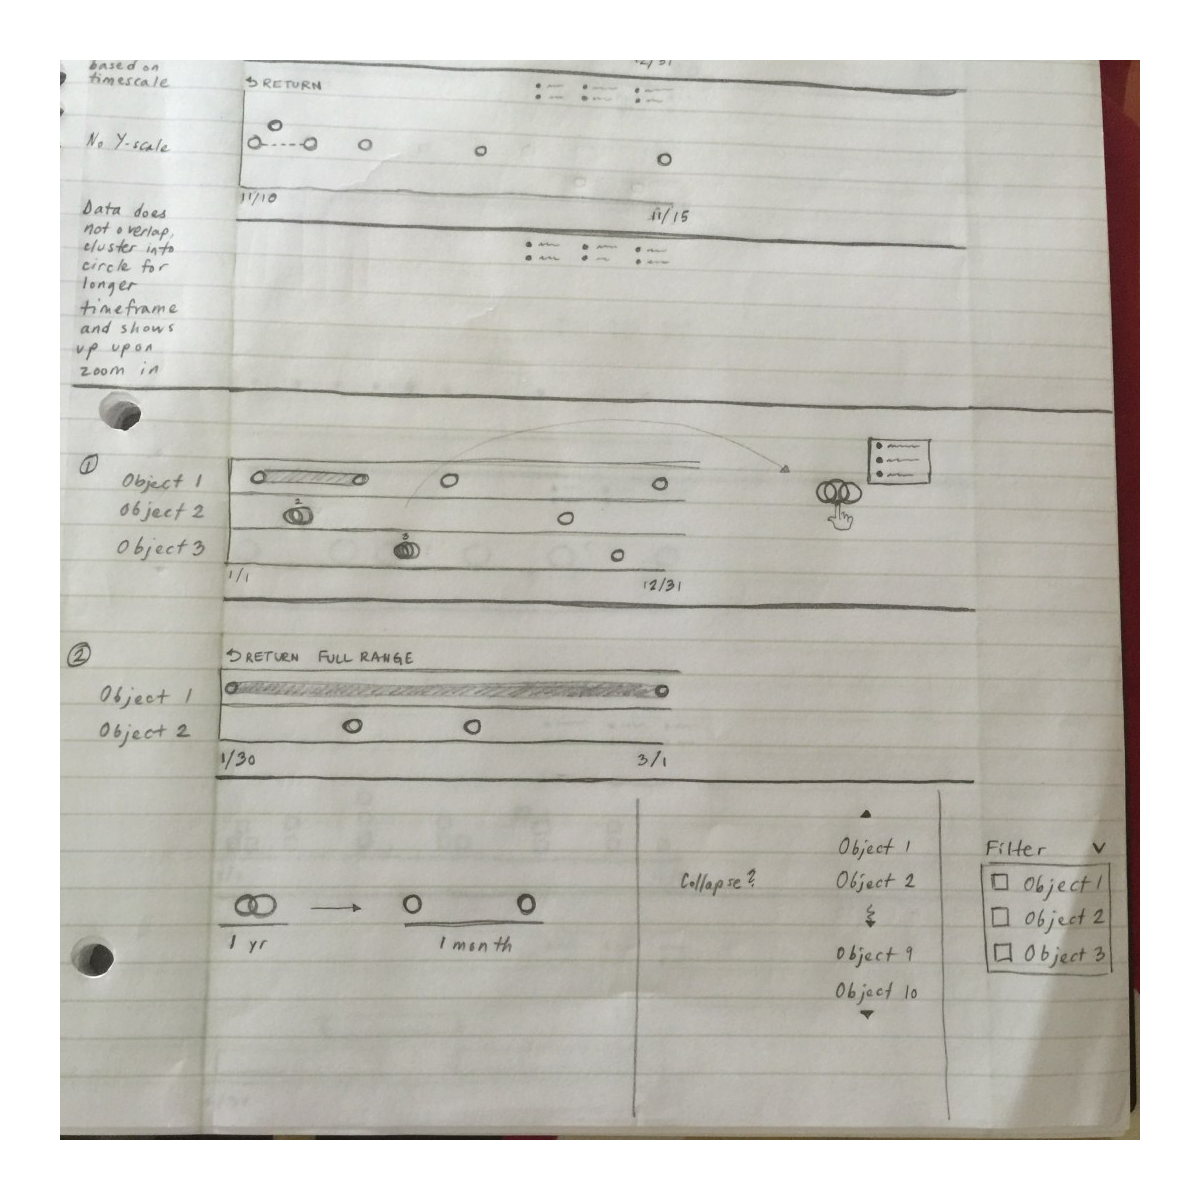 based on
timescale
12/31
RETURN
No Y-scale
11/10
11/15
Data does
not overlap,
cluster into
circle for
longer
timeframe
and shows
up upon
zoom in
1
Object 1
Object 2
2
Object 3
3
1/1
12/31
2
RETURN FULL RANGE
Object 1
Object 2
1/30
3/1
1 yr
1 month
Collapse?
Object 1
Object 2
Object 9
Object 10
Filter
Object 1
Object 2
Object 3